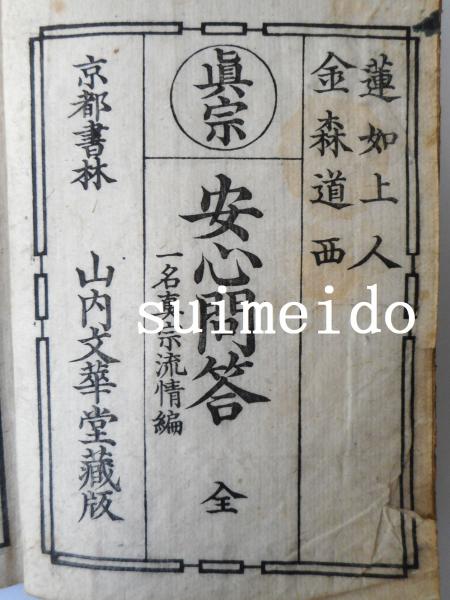 蓮如上人
金森道西
眞宗
安心問答
全
一名真宗流情編
京都書林 山内文華堂藏版
suimeido